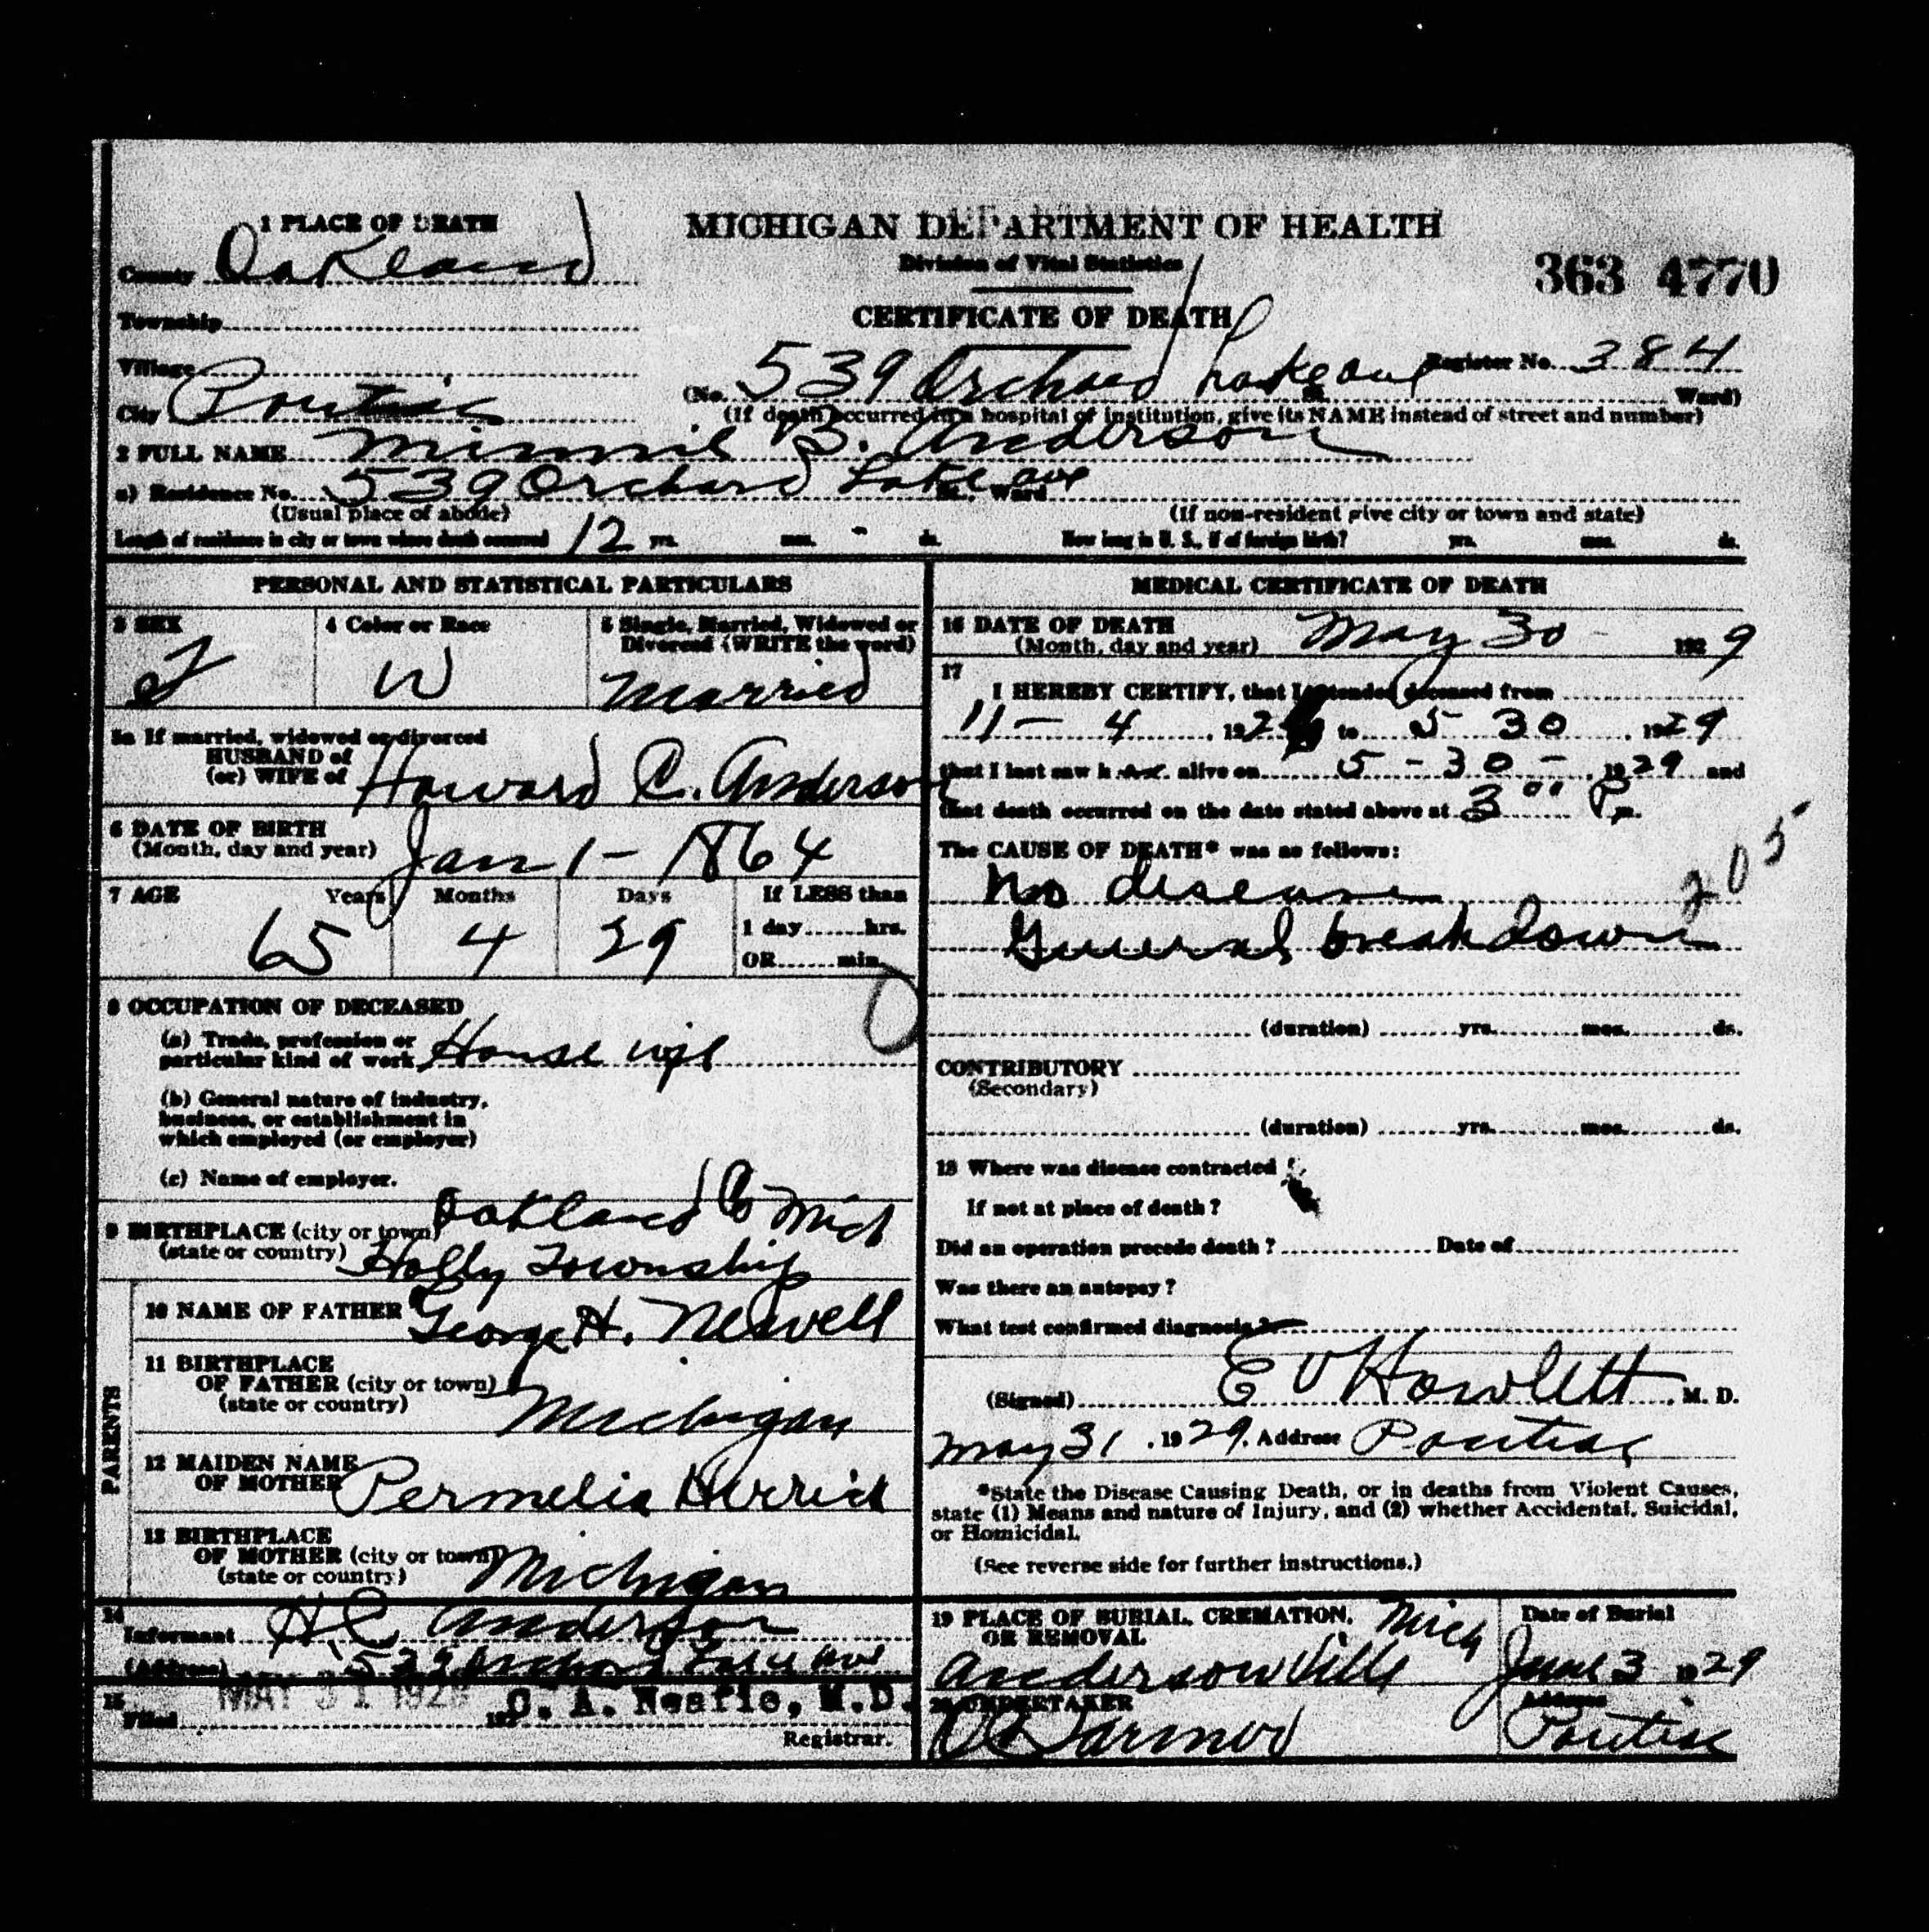 1 PLACE OF DEATH
MICHIGAN DEPARTMENT OF HEALTH
Division of Vital Statistics
363 4770
County Oakland
CERTIFICATE OF DEATH
Township
Village
Register No. 384
City Pontiac
(No. 539 Orchard Lake ave St. Ward)
(If death occurred in a hospital or institution, give its NAME instead of street and number)
2 FULL NAME Minnie B. Anderson
a) Residence No. 539 Orchard Lake ave St., Ward
(Usual place of abode)
(If non-resident give city or town and state)
Length of residence in city or town where death occurred 12 yrs. mos. - ds.
How long in U. S., if of foreign birth? yrs. mos. ds.
PERSONAL AND STATISTICAL PARTICULARS
3 SEX
F
4 Color or Race
W
5 Single, Married, Widowed or
Divorced (WRITE the word)
Married
5a If married, widowed or divorced
HUSBAND of
(or) WIFE of Howard C. Anderson
6 DATE OF BIRTH
(Month, day and year) Jan 1 - 1864
7 AGE Years Months Days
65 4 29
If LESS than
1 day......hrs.
OR......min.
8 OCCUPATION OF DECEASED
(a) Trade, profession or
particular kind of work House wife
(b) General nature of industry,
business, or establishment in
which employed (or employer)
(c) Name of employer.
9 BIRTHPLACE (city or town) Oakland Co Mich
(state or country) Holly Township
PARENTS
10 NAME OF FATHER George H. Newell
11 BIRTHPLACE
OF FATHER (city or town)
(state or country) Michigan
12 MAIDEN NAME
OF MOTHER Permelia Herrick
13 BIRTHPLACE
OF MOTHER (city or town)
(state or country) Michigan
14
Informant H.C. Anderson
(Address) 539 Orchard Lake Ave
15
Filed MAY 31 1929 192 C. A. Neafie, M.D.
Registrar.
MEDICAL CERTIFICATE OF DEATH
16 DATE OF DEATH
(Month, day and year) May 30 - 1929
17
I HEREBY CERTIFY, that I attended deceased from
11 - 4 , 192 to 5 30 , 1929
that I last saw her alive on 5 - 30 - , 1929 and
that death occurred on the date stated above at 3 00 P m.
The CAUSE OF DEATH* was as follows:
No disease 205
General breakdown
(duration) yrs. mos. ds.
CONTRIBUTORY
(Secondary)
(duration) yrs. mos. ds.
18 Where was disease contracted
If not at place of death?
Did an operation precede death? Date of
Was there an autopsy?
What test confirmed diagnosis?
(Signed) E V Howlett, M. D.
May 31 , 1929, Address Pontiac
*State the Disease Causing Death, or in deaths from Violent Causes,
state (1) Means and nature of Injury, and (2) whether Accidental, Suicidal,
or Homicidal.
(See reverse side for further instructions.)
19 PLACE OF BURIAL, CREMATION,
OR REMOVAL
Andersonville Mich
Date of Burial
June 3 1929
20 UNDERTAKER
Address
Pontiac